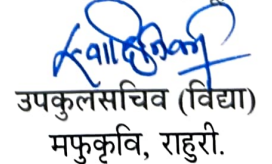 उपकुलसचिव (विद्या)
मफुकृवि, राहुरी.